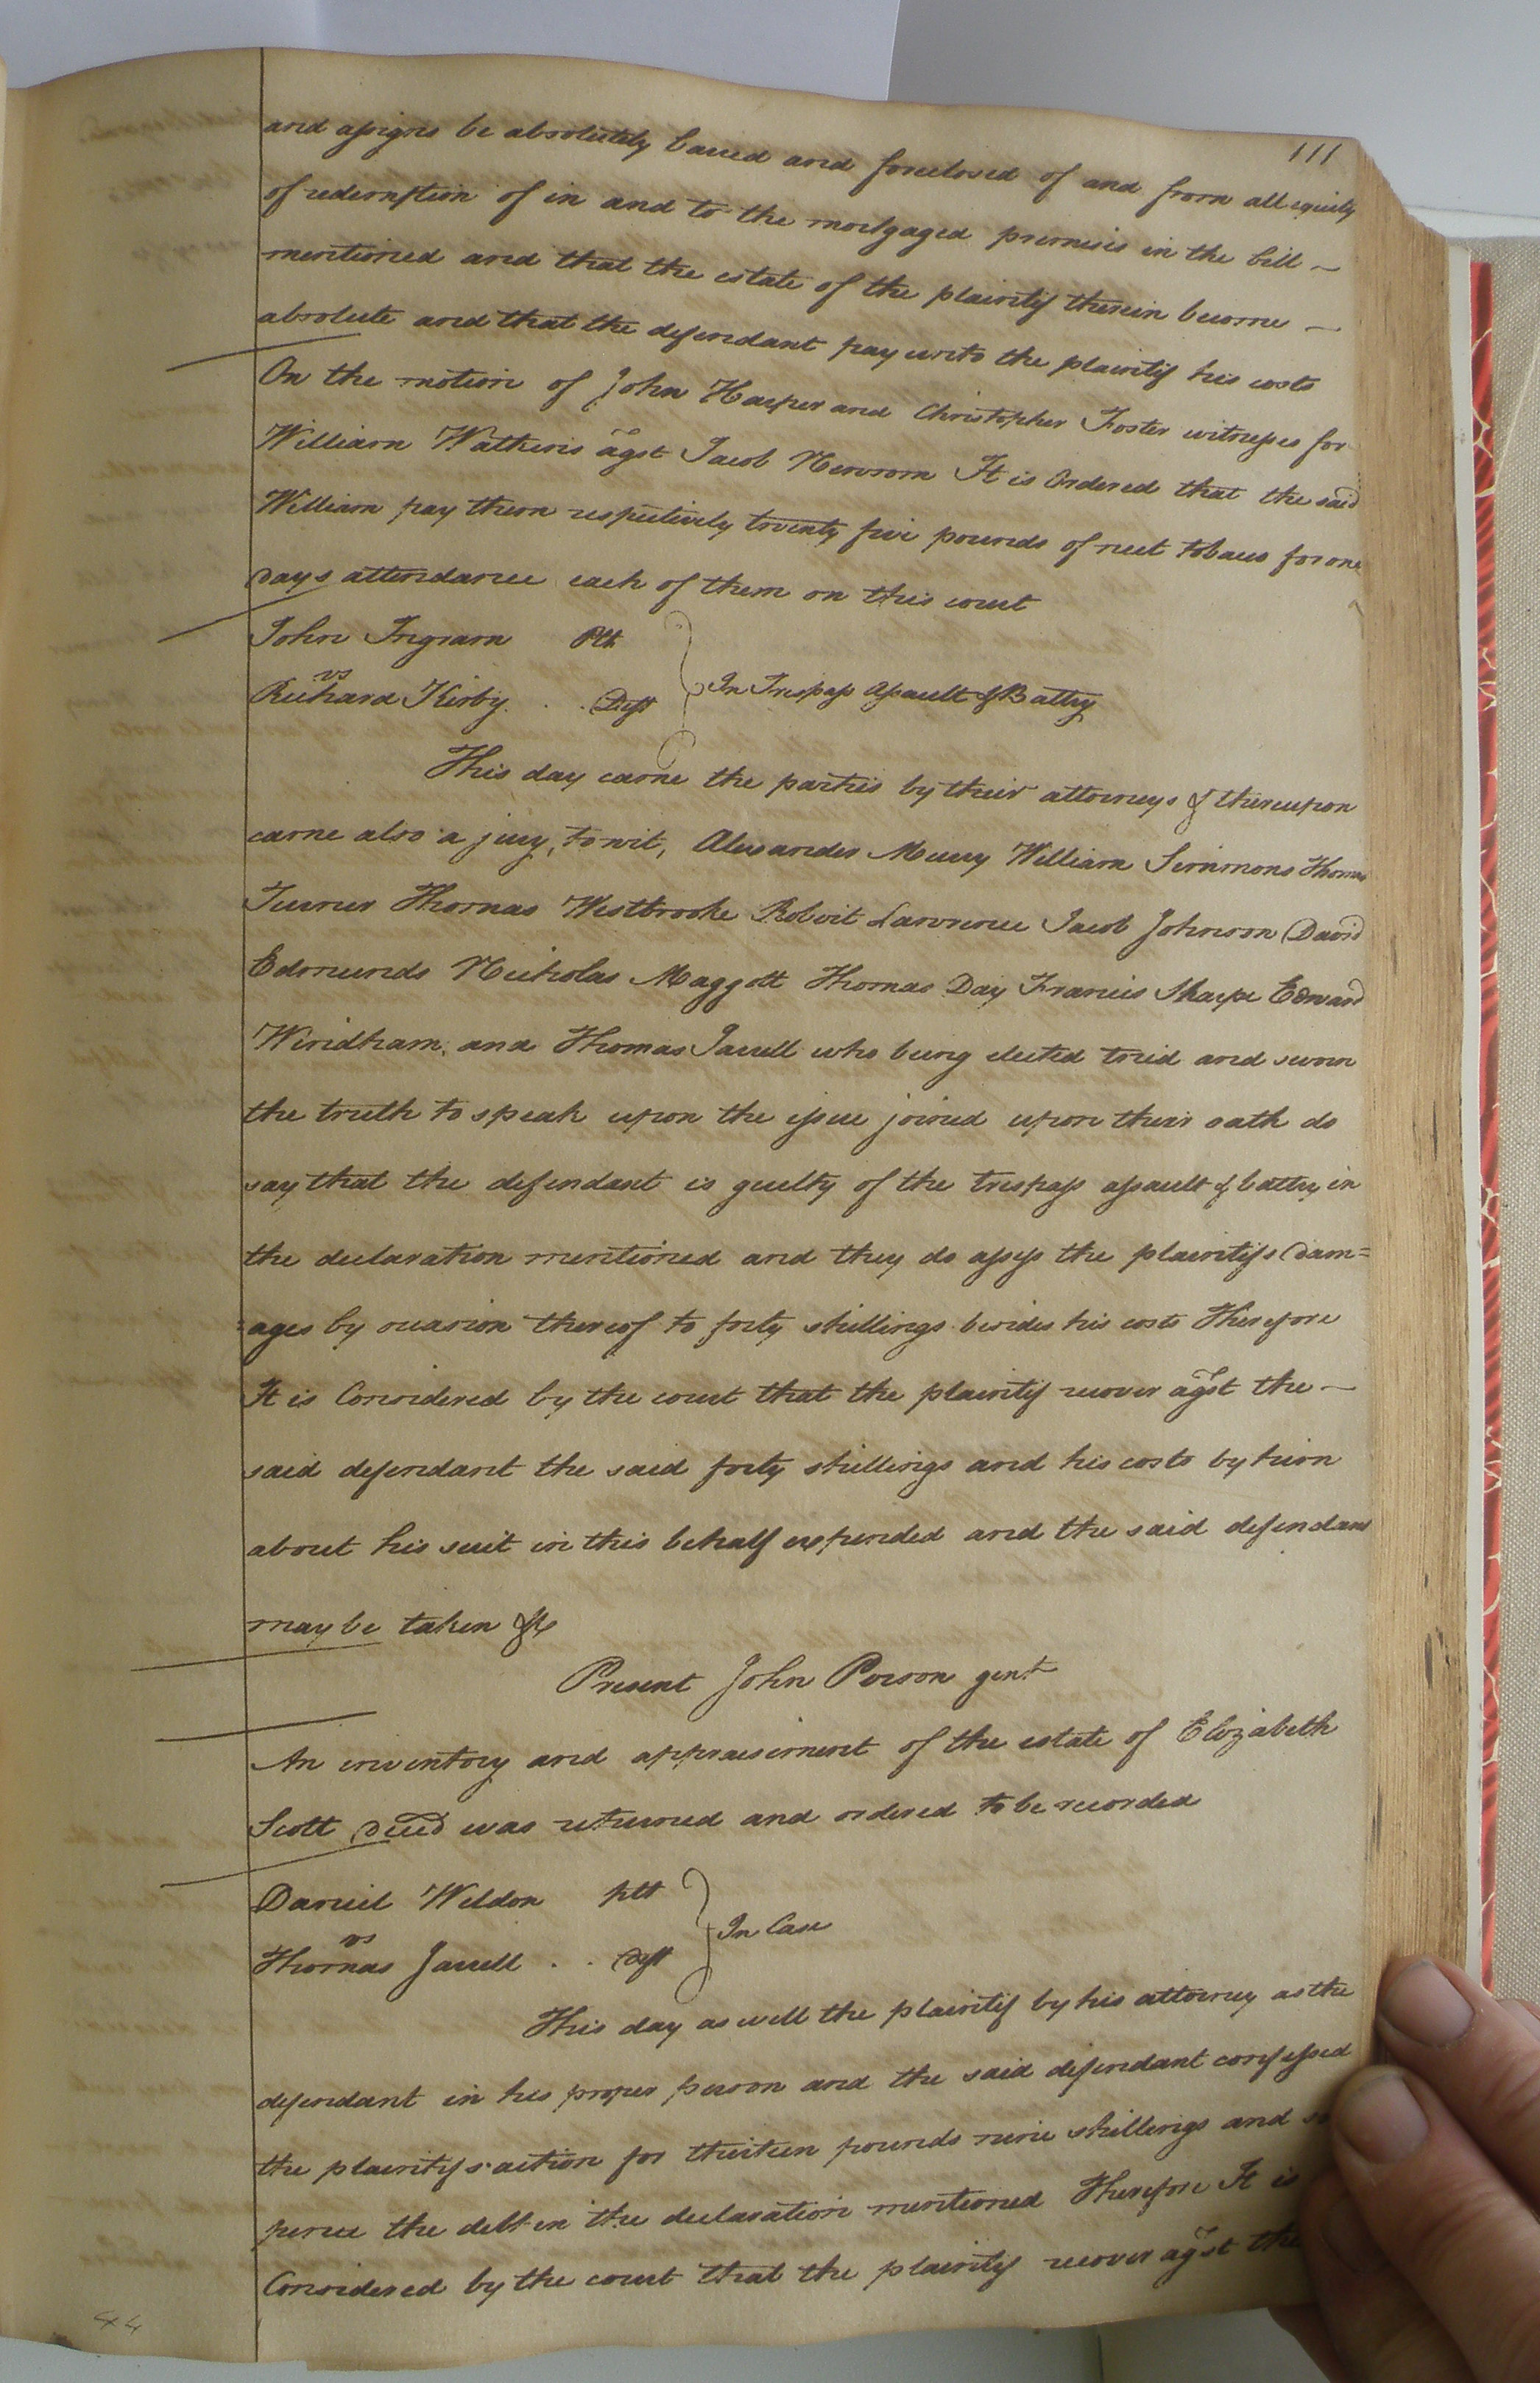 111
and assigns be absolutely barred and foreclosed of and from all equity
of redemption of in and to the mortgaged premises in the bill —
mentioned and that the estate of the plaintif therein become —
absolute and that the defendant pay unto the plaintif his costs
On the motion of John Harper and Christopher Foster witnesses for
William Watkins agst Jacob Newsom It is Ordered that the said
William pay them respectively twenty five pounds of neet tobacco for one
days attendance each of them on this court
John Ingram Plt
vs
Richard Kirby . . Deft
In Trespass Assault & Battry
This day came the parties by their attorneys & thereupon
came also a jury, towit, Alexander Murry William Simmons Thomas
Turner Thomas Westbrooke Robert Lawrence Jacob Johnson David
Edmunds Nicholas Maggott Thomas Day Francis Sharpe Edward
Windham, and Thomas Jarrell who being elected tried and sworn
the truth to speak upon the issue joined upon their oath do
say that the defendant is guilty of the trespass assault & battry in
the declaration mentioned and they do assess the plaintifs dam=
=ages by occasion thereof to forty shillings besides his costs Therefore
It is Considered by the court that the plaintif recover agst the —
said defendant the said forty shillings and his costs by him
about his suit in this behalf expended and the said defendant
may be taken &c
Present John Person gent
An inventory and appraisement of the estate of Elizabeth
Scott decd was returned and ordered to be recorded
Daniel Weldon plt
vs
Thomas Jarrell . . Deft
In Case
This day as well the plaintif by his attorney as the
defendant in his proper person and the said defendant confessed
the plaintifs action for thirteen pounds nine shillings and
pence the debt in the declaration mentioned Therefore It is
Considered by the court that the plaintif recover agst the
44